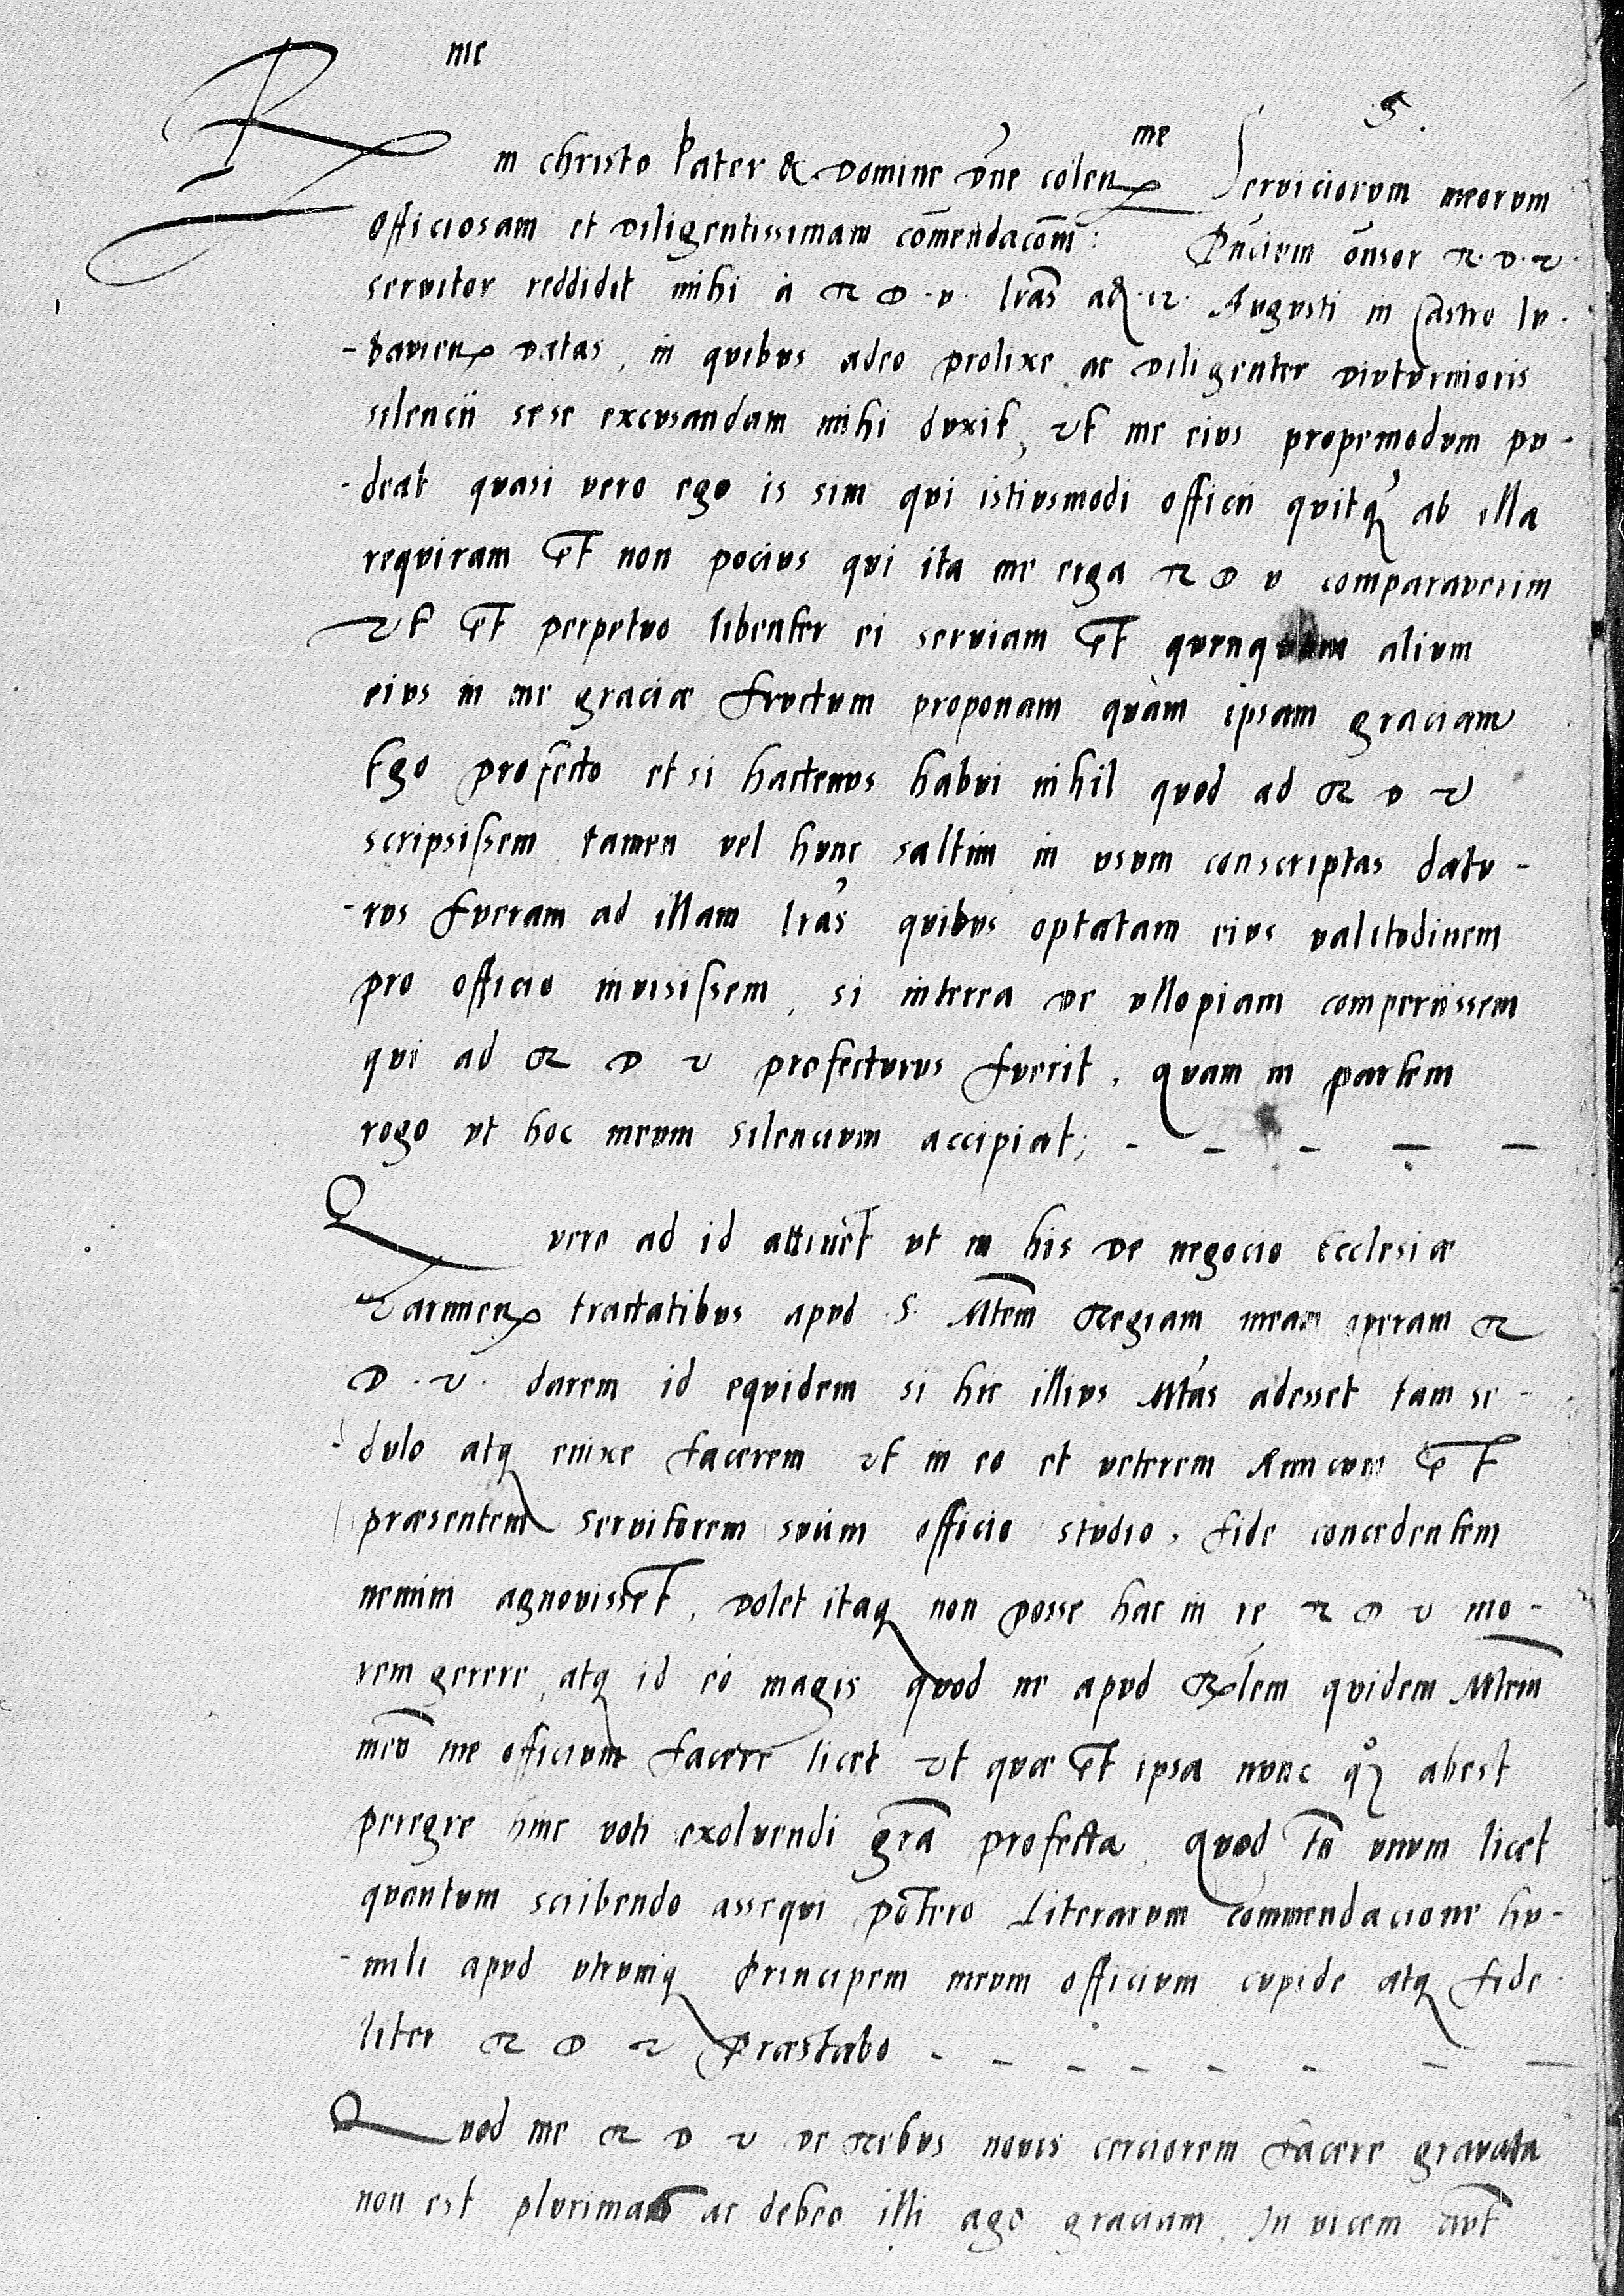 5.
R me in christo Pater & Domine Dn̄e colen me Serviciorum meorum
officiosam et diligentissimam com̄endacōm: Pn̄cium ōnsor R. D. V.
servitor reddidit mihi à R D. V. lrās ad 12. Augusti in Castro lu-
-bavien datas, in quibus adeo prolixe ac diligenter diuturnioris
silencii sese excusandam mihi duxit, ut me eius propemodum pu-
-deat quasi vero ego is sim qui istiusmodi officii quitq̄ ab illa
requiram et non pocius qui ita me erga R D V comparaverim
Ut et perpetuo libenter ei serviam et quenquam alium
eius in me graciæ fructum proponam quàm ipsam graciam
Ego profecto etsi hactenus habui nihil quod ad R D V
scripsissem tamen vel hunc saltim in usum conscriptas datu-
-rus fueram ad illam lrās quibus optatam eius valitudinem
pro officio invisissem, si interea de ullopiam comperiissem
qui ad R D V profecturus fuerit, quam in partem
rogo ut hoc meum silencium accipiat; - - - - -
Q vere ad id attinet ut in his de negocio Ecclesiæ
Varmien tractatibus apud S. Mtem Regiam meam operam R
D. V. darem id equidem si hic illius Mtas adesset tam se-
-dulo atq enixe facerem ut in eo et veterem Amicum et
præsentem servitorem suum officio studio, fide concedentem
nemini agnovisset, dolet itaq non posse hac in re R D V mo-
rem gerere, atq id eò magis quod ne apud Rlem quidem Mtem
meū me officium facere licet Ut quæ et ipsa nunc qͦz abest
peregre hinc voti exolvendi grā profecta. Quod tn̄ unum licet
quantum scribendo assequi potero Literarum commendacione hu-
-mili apud utrumq Principem meum officium cupide atq fide-
liter R D V Præstabo - - - - - - - -
Quod me R D V de Rebus novis cerciorem facere gravata
non est plurimam ac debeo illi ago graciam. In vicem aut